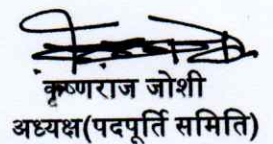 कृष्णराज जोशी
अध्यक्ष(पदपूर्ति समिति)